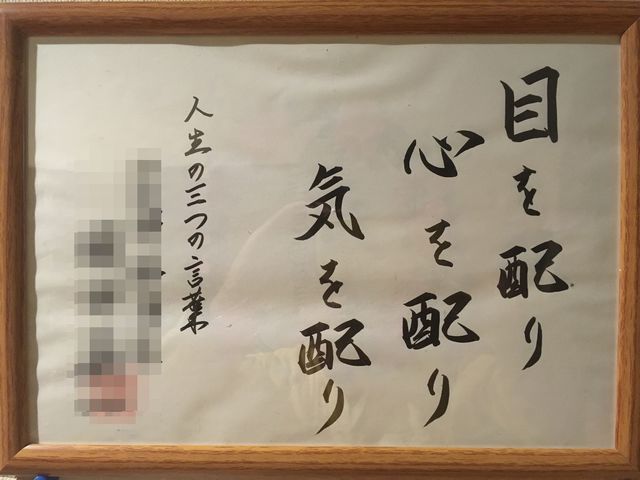 目を配り
心を配り
気を配り
人生の三つの言葉